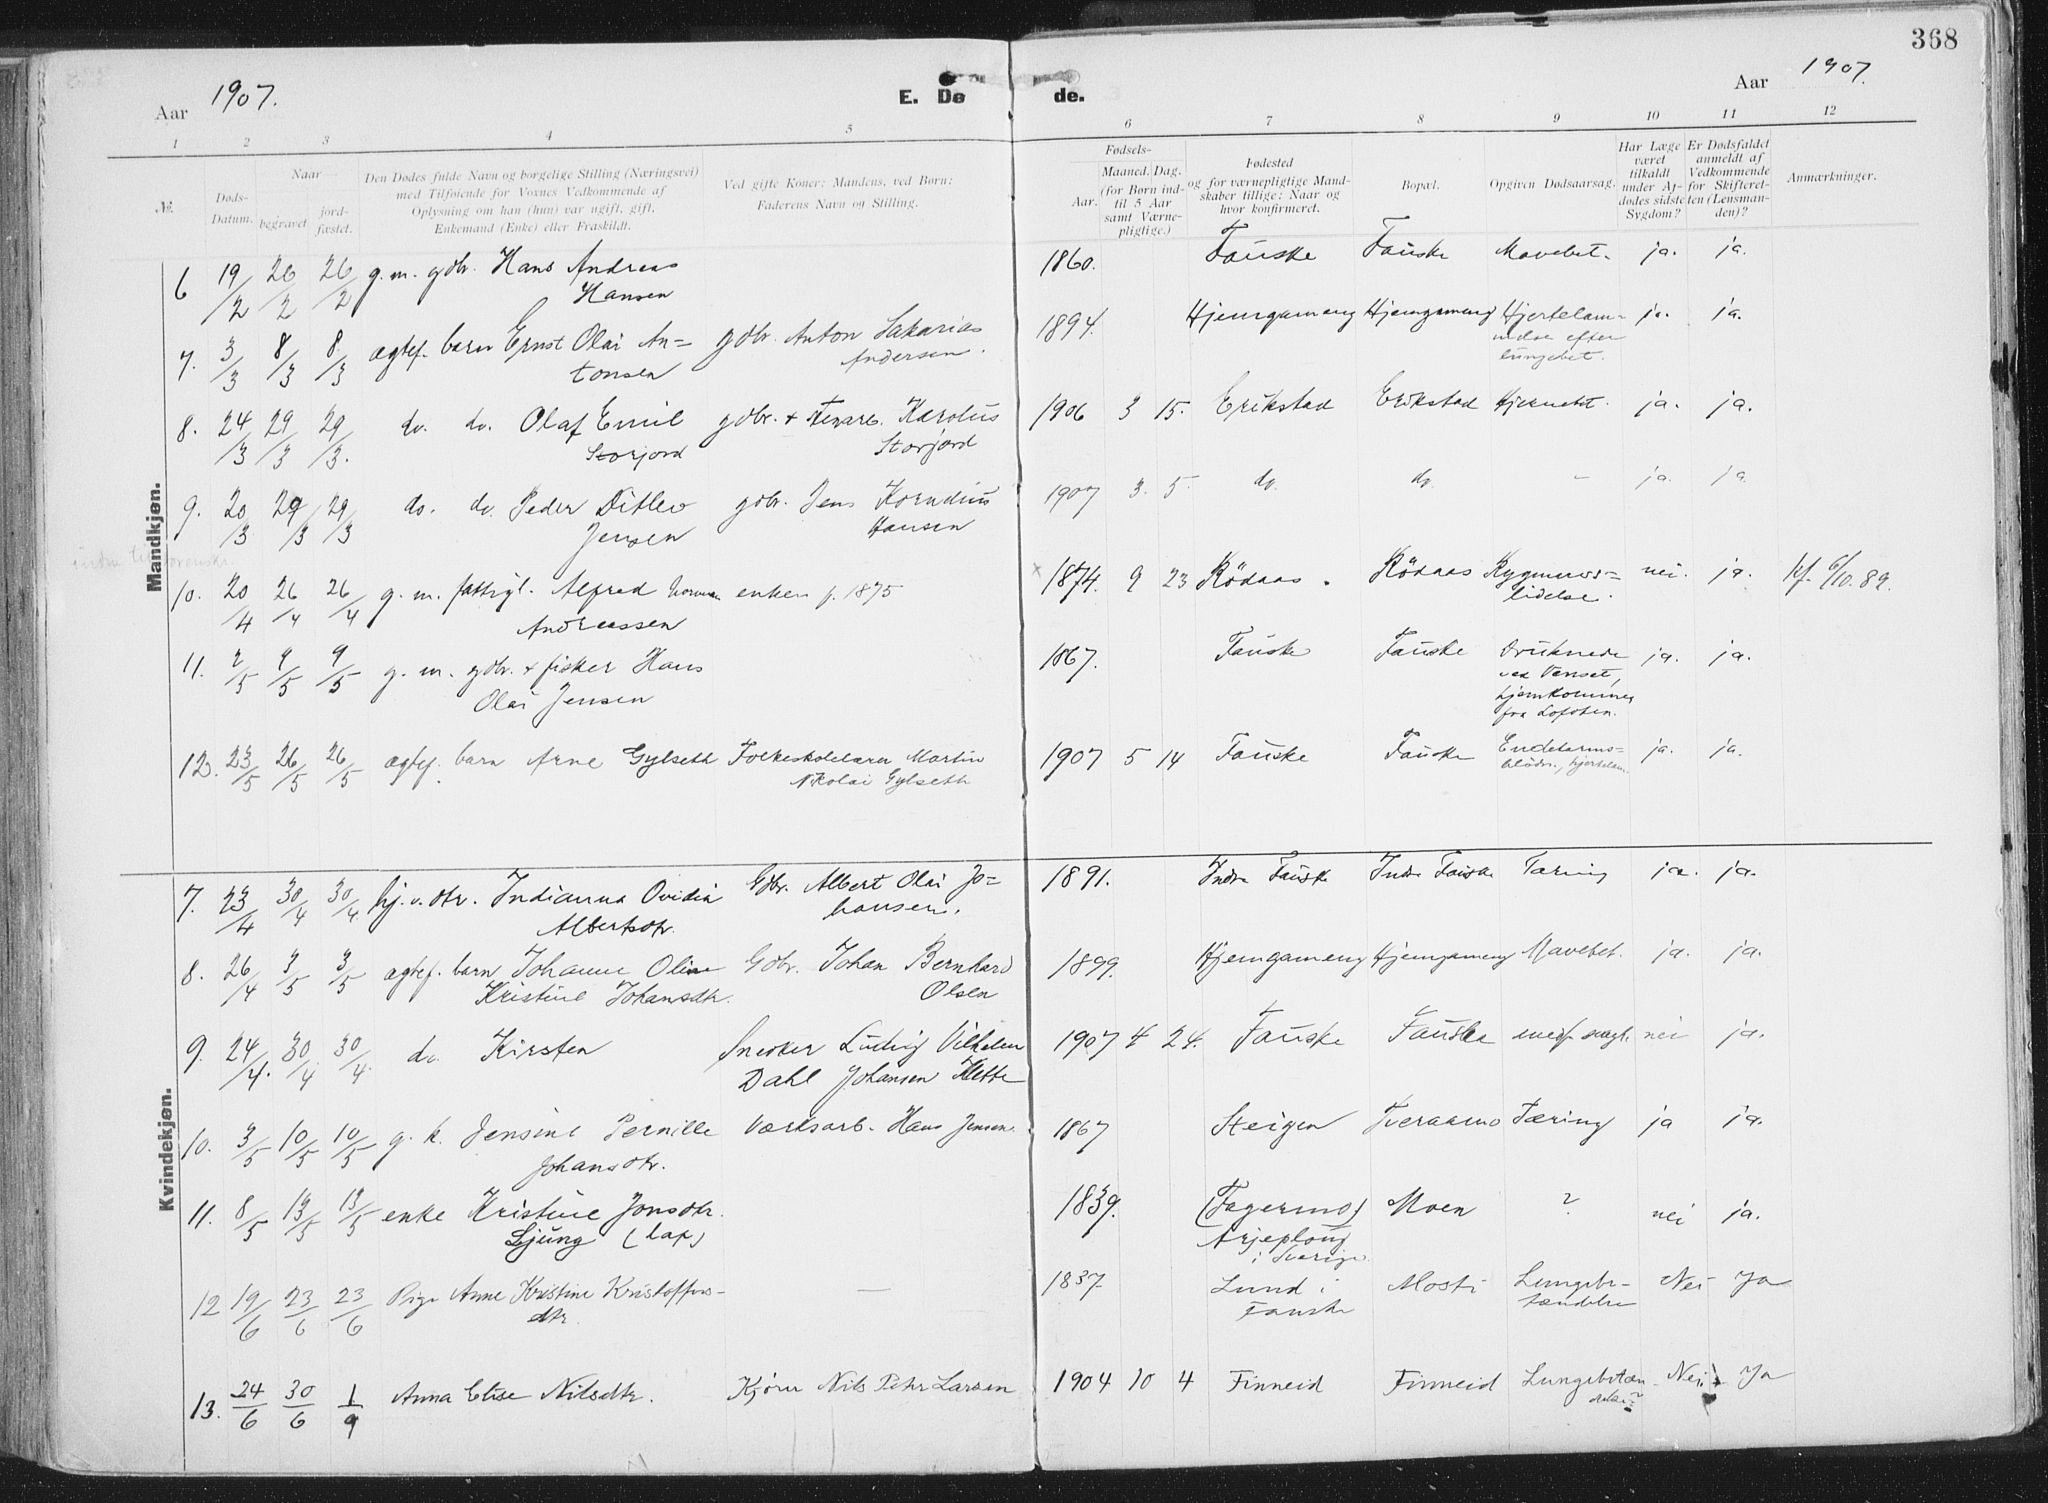 368
Aar 1907.
E. Dø de.
Aar 1907.
1 2 3 4 5 6 7 8 9 10 11 12
№.
Døds-Datum.
Naar
begravet
jord-fæstet.
Den Dødes fulde Navn og borgelige Stilling (Næringsvei)
med Tilføiende for Voxnes Vedkommende af
Oplysning om han (hun) var ugift, gift,
Enkemand (Enke) eller Fraskildt.
Ved gifte Koner: Mandens, ved Børn:
Faderens Navn og Stilling.
Fødsels-
Aar.
Maaned. Dag.
(for Børn ind-
til 5 Aar
samt Værne-
pligtige.)
Fødested
og for værnepligtige Mand-
skaber tillige: Naar og
hvor konfirmeret.
Bopæl.
Opgiven Dødsaarsag.
Har Læge
været
tilkaldt
under Af-
dødes sidste
Sygdom?
Er Dødsfaldet
anmeldt af
Vedkommende
for Skifteret-
ten (Lensman-
den)?
Anmærkninger.
Mandkjøn.
6 19/2 26/2 26/2 g. m. gdbr. Hans Andreas 1860. Fauske Fauske Mavebet. ja. ja.
Hansen
7. 3/3 8/3 8/3 ægtef. barn Ernst Olai An= gdbr. Anton Sakarias 1894. Hjemgameng Hjemgameng Hjertelam= ja. ja.
tonsen Andersen. melse efter
lungebet.
8. 24/3 29/3 29/3. do. do. Olaf Emil gdbr. + Karolus 1906 3 15. Erikstad Erikstad Hjernebet. ja. ja.
Storjord Storjord
9. 20/3 29/3 29/3 do. do. Peder Ditlev gdbr. Jens Kornelius 1907 3. 5. do. do. - ja. ja
Jensen Hansen
10. 20/4 26/4 26/4 g. m. fattigl. Alfred enken f. 1875 1874. 9 23 Rödaas. Rödaas Rygmarvs= nei. ja. kf. 6/10. 89.
Andreassen lidelse.
11. 2/5 9/5 9/5 g. m. gdbr. + fisker Hans 1867. Fauske Fauske Druknede ja. ja.
Olai Jensen ved Venset,
hjemkommen
fra Lofoten.
12. 23/5 26/5 26/5 ægtef. barn Arne Gylseth Folkeskolelærer Martin 1907 5 14 Fauske Fauske Endetarms= ja. ja.
Nikolai Gylseth blödn., hjertelam.
Kvindekjøn.
7. 23/4 30/4 30/4 hj. v. dtr. Indianna Ovidia Gdbr. Albert Olai Jo= 1891. Indre Fauske Indre Fauske Tæring ja. ja.
Albertsdtr. hansen.
8. 26/4 3/5 3/5 ægtef. barn Johanne Oline Gdbr. Johan Bernhard 1899. Hjemgameng Hjemgameng Mavebet. ja. ja.
Kristine Johansdtr. Olsen
9. 24/4. 30/4 30/4. do Kirsten Snedker Ludvig Vilhelm 1907 4 24. Fauske Fauske medf. svagh. nei ja.
Dahl Johansen Klette
10. 3/5 10/5 10/5 g. k. Jensine Pernille Værksarb. Hans Jensen. 1867 Steigen Tveraamo Tæring ja ja.
Johansdtr.
11. 8/5 13/5 13/5 enke Kristine Jonsdtr. 1839. (Fagermo) Moen ? nei ja.
Ljung (lap) Arjeploug
i Sverige.
12 19/6 23/6 23/6 Pige Anne Kristine Kristoffers- — 1837 Lund i Mosti Lungebe- Nei Ja
dtr. Fauske tændelse
13. 24/6 30/6 1/9 Anna Elise Nilsdtr. Kjører Nils Petter Larsen 1904 10 4 Finneid Finneid Lungebetæn- Nei Ja
delse?